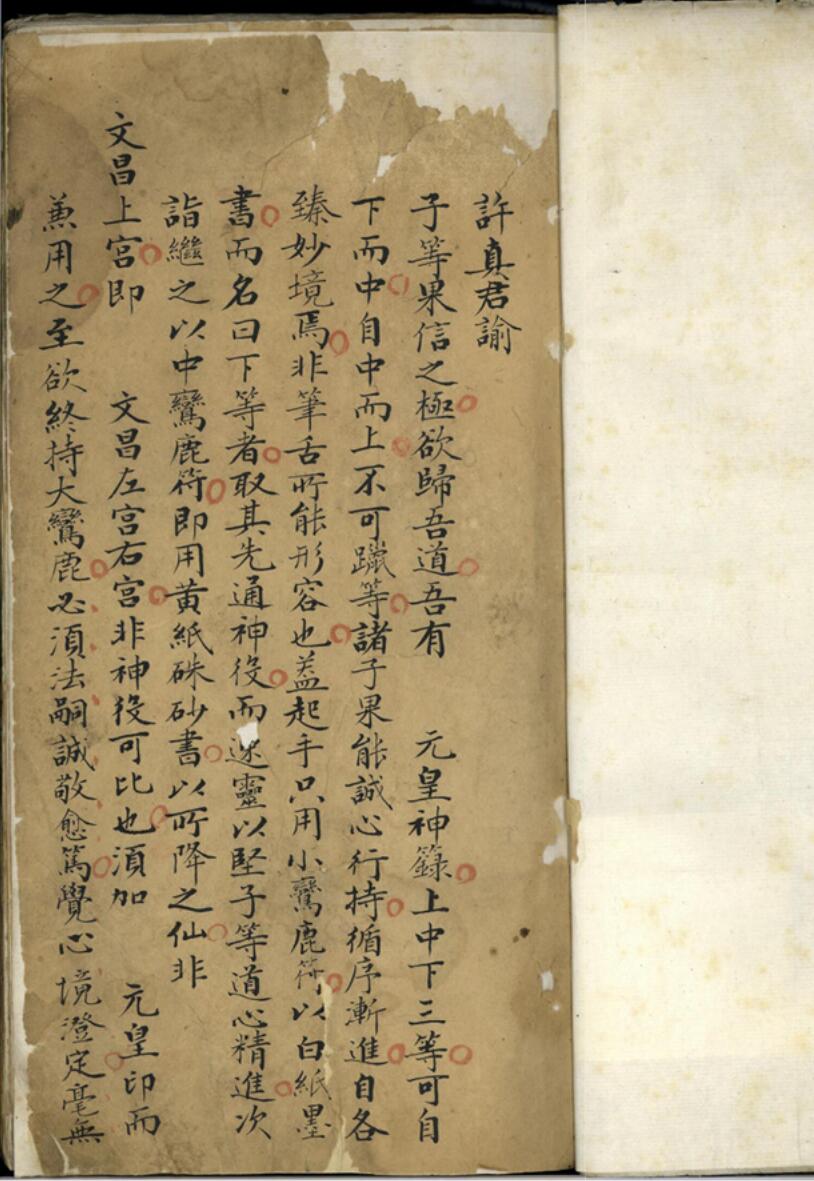 許真君諭
子等果信之極欲歸吾道吾有　元皇神籙上中下三等可自
下而中自中而上不可躐等諸子果能誠心行持循序漸進自各
臻妙境焉非筆舌所能形容也葢起手只用小鸞鹿符以白紙墨
書而名曰下等者取其先通神役而迷靈以堅子等道心精進次
詣繼之以中鸞鹿符即用黄紙硃砂書以所降之仙非
文昌上宮即　文昌左宮右宮非神役可比也須加　元皇印而
兼用之至欲終持大鸞鹿必須法嗣誠敬愈篤覺心境澄定毫無